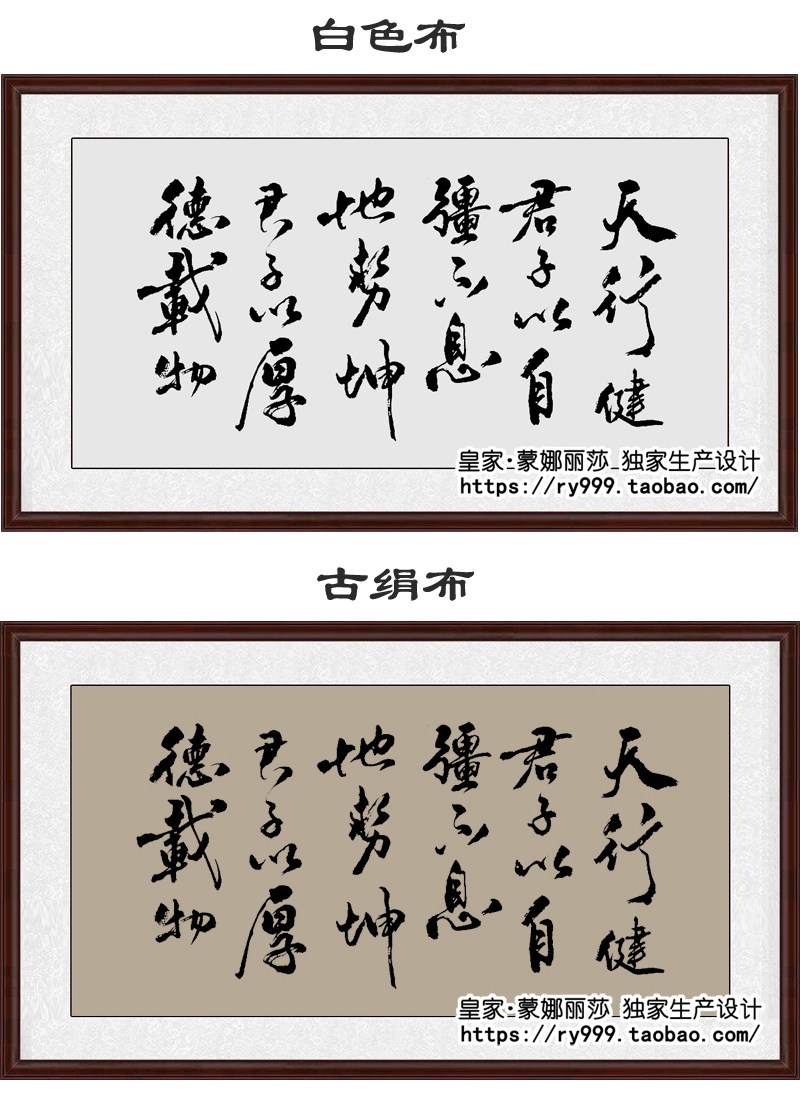 白色布
天行健
君子以自
彊不息
地势坤
君子以厚
德載物
皇家·蒙娜丽莎 独家生产设计
https://ry999.taobao.com/
古绢布
天行健
君子以自
彊不息
地势坤
君子以厚
德載物
皇家·蒙娜丽莎 独家生产设计
https://ry999.taobao.com/